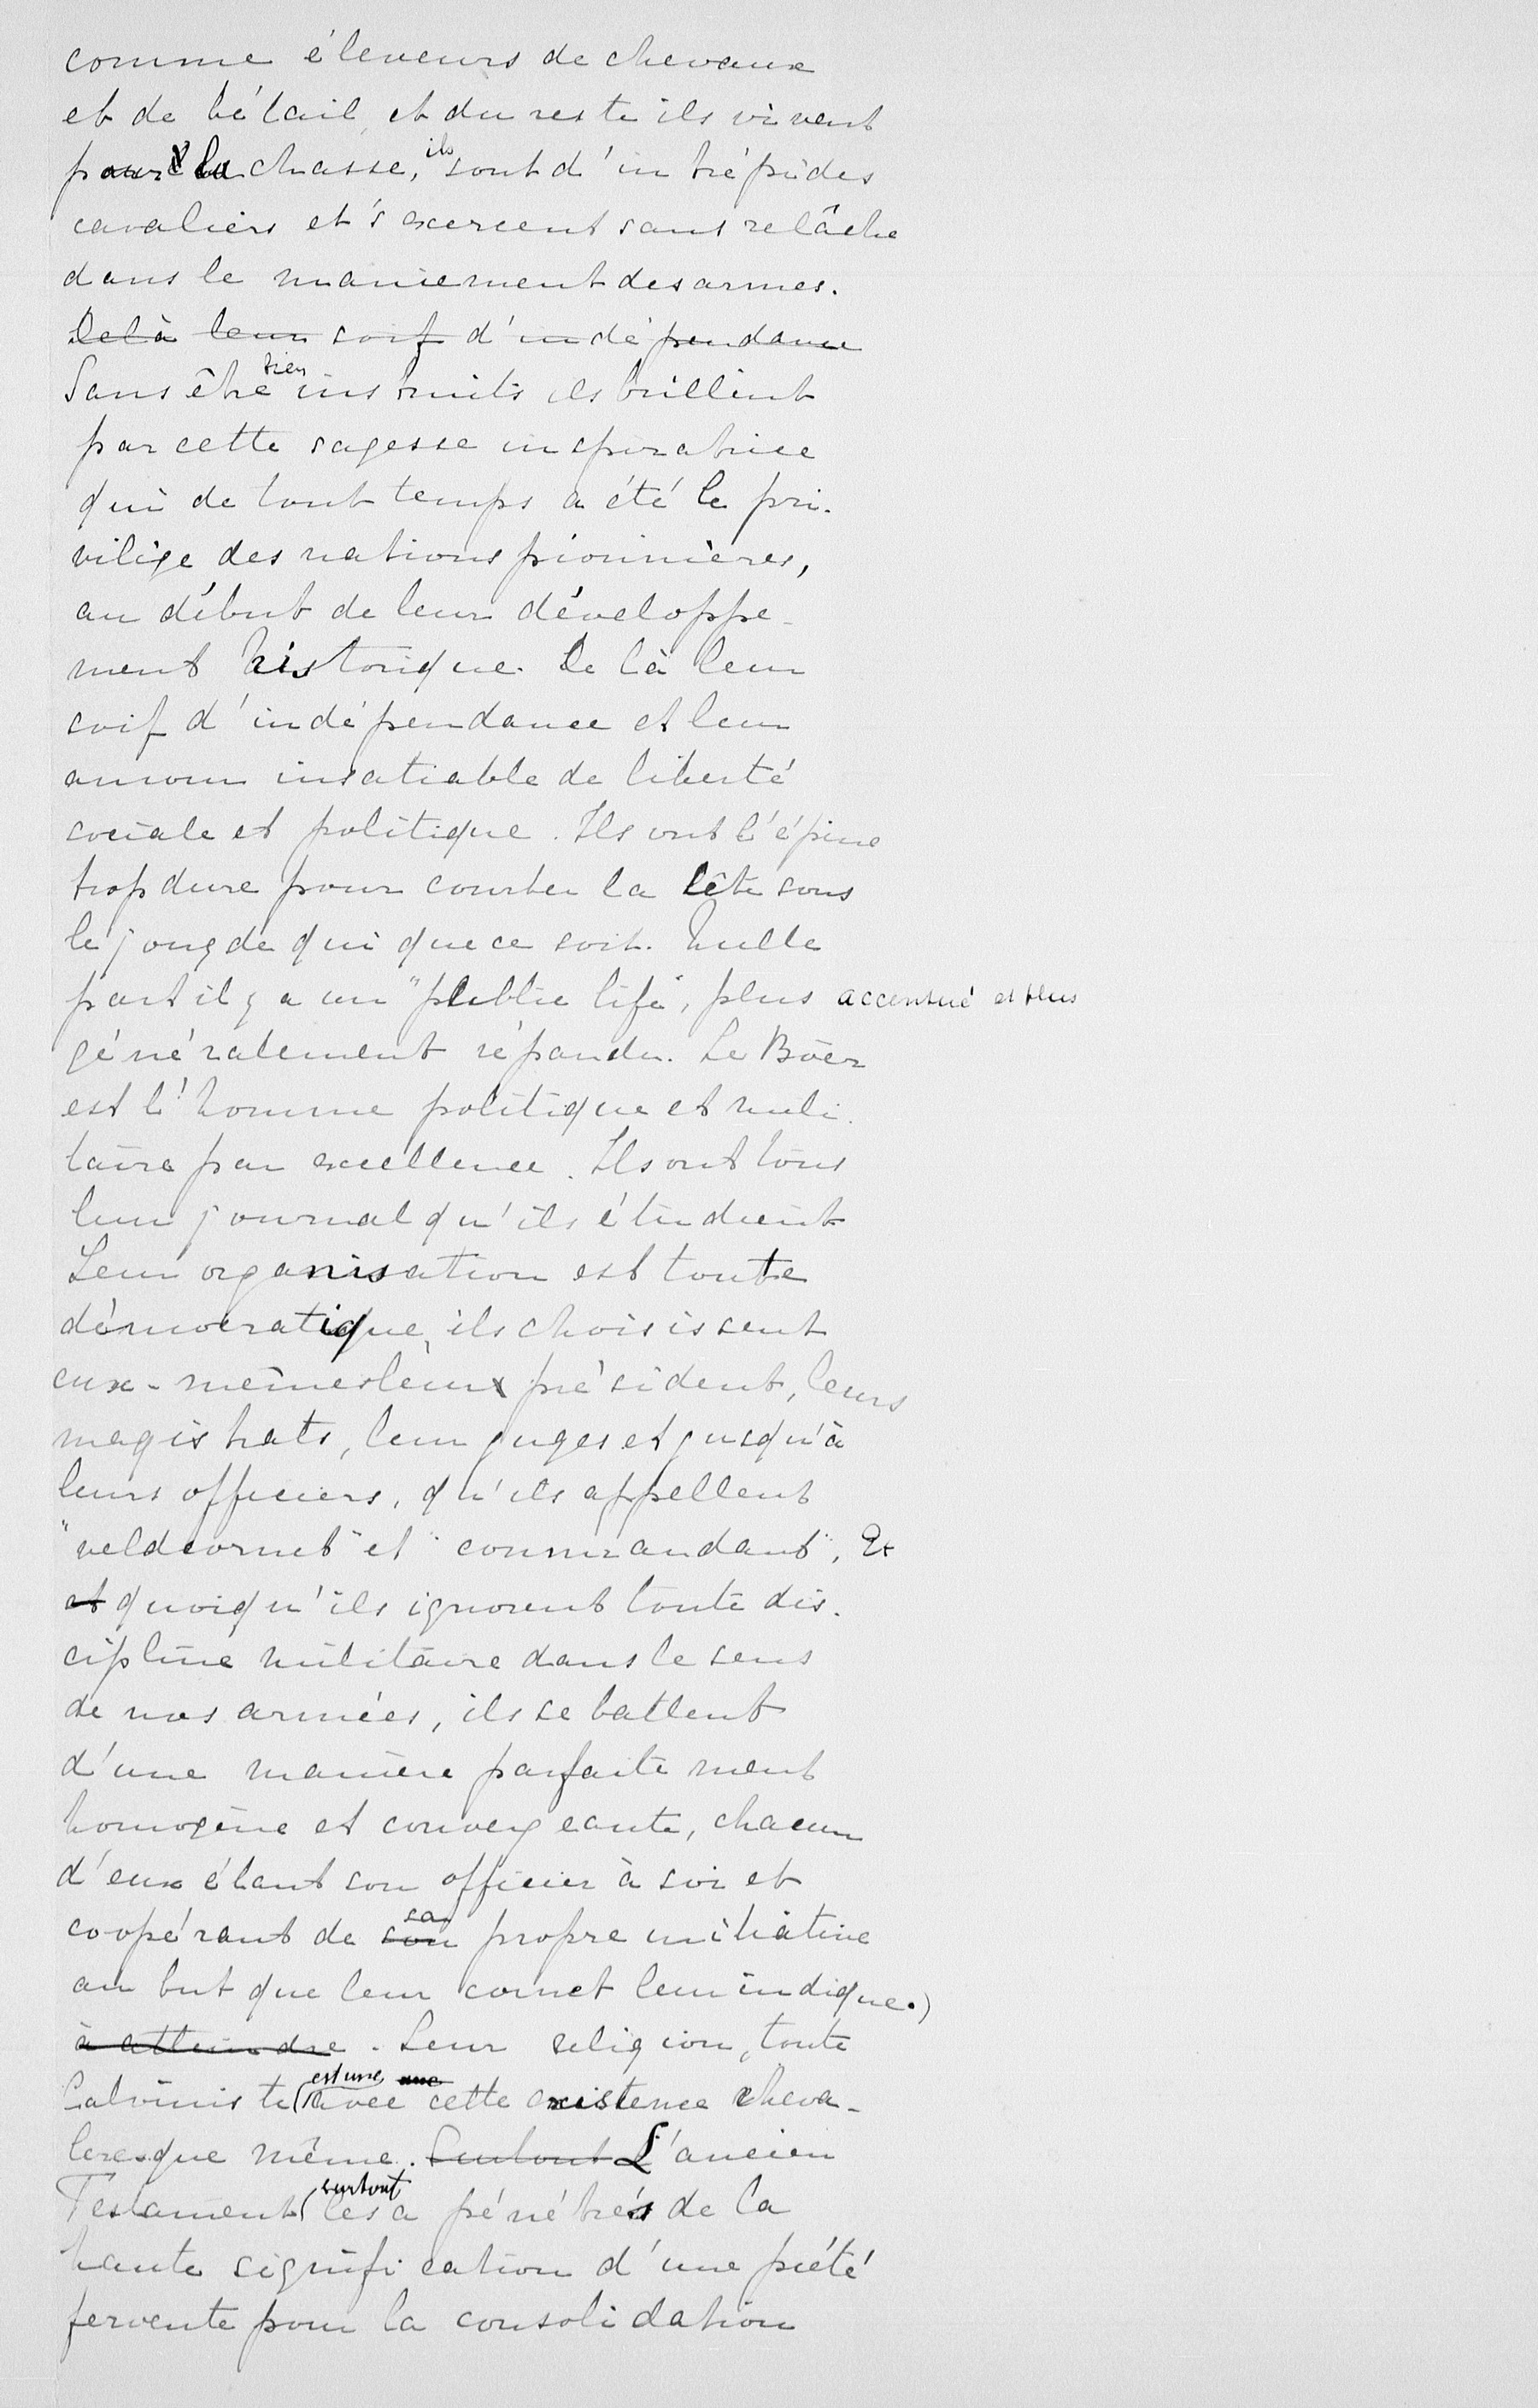 comme éleveurs de chevaux
et de bétail, et du reste ils vivent
pour la chasse, ils sont d'intrépides
cavaliers et s'exercent sans relâche
dans le maniement des armes.
De là leur soif d'indépendance
Sans être bien instruits ils brillent
par cette sagesse inspiratrice
qui de tout temps a été le pri-
vilège des nations pionnières,
au début de leur développe-
ment historique. De là leur
soif d'indépendance et leur
amour insatiable de liberté
sociale et politique. Ils ont l'épine
trop dure pour courber la tête sous
le joug de qui que ce soit. Nulle
part il y a un "public life", plus accentué et plus
généralement répandu. Le Boer
est l'homme politique et mili-
taire par excellence. Ils ont tous
leur journal qu'ils étudient
Leur organisation est toute
démocratique, ils choisissent
eux-mêmes leur président, leurs
magistrats, leur juges et jusqu'à
leurs officiers, qu'ils appellent
"veldcornet" et "commandant". Et
et quoiqu'ils ignorent toute dis-
cipline militaire dans le sens
de nos armées, ils se battent
d'une manière parfaitement
homogène et convergeante, chacun
d'eux étant son officier à soi et
coopérant de son sa propre initiative
au but que leur cornet leur indique.)
à atteindre. Leur religion, toute
Calviniste (est une avec cette existence cheva-
leresque même. Surtout L'ancien
Testament (surtout les a pénétrés de la
haute signification d'une piété
fervente pour la consolidation